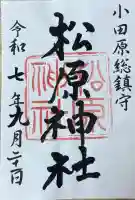 小田原総鎮守
松原神社
令和七年九月二十日